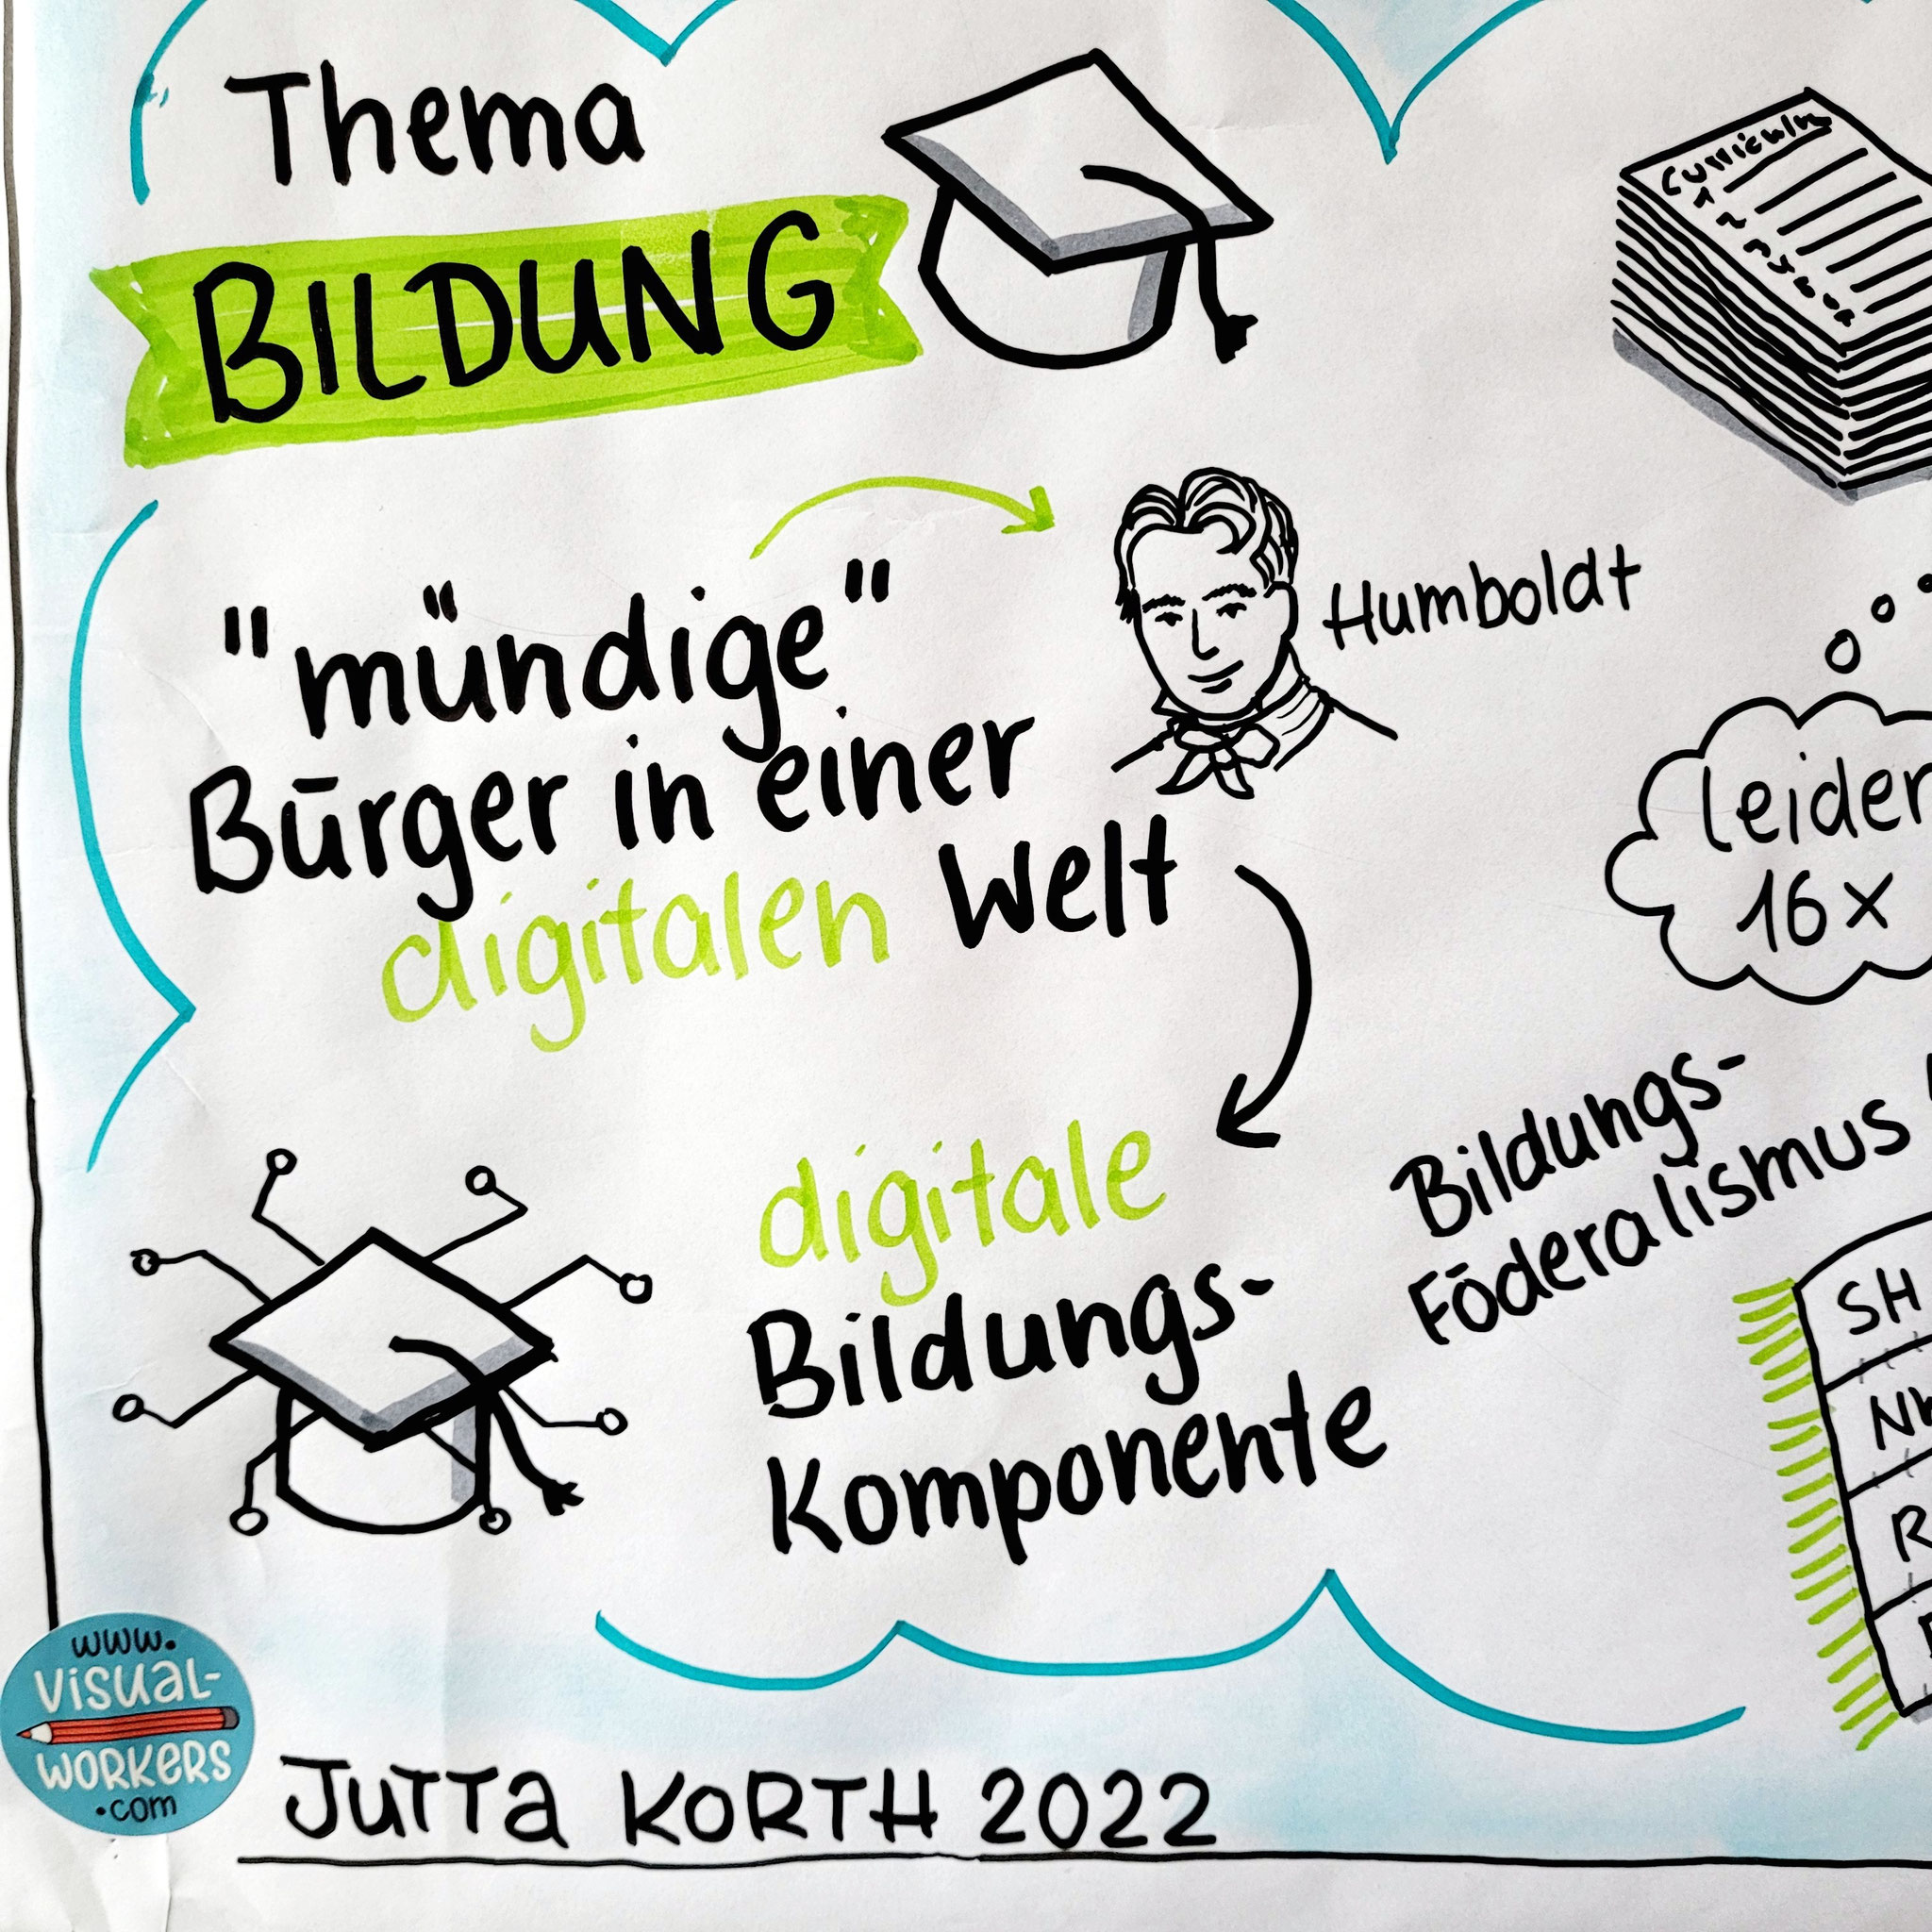 Thema
BILDUNG
Curriculum
"mündige"
Bürger in einer
digitalen Welt
Humboldt
leider
16x
digitale
Bildungs-
Komponente
Bildungs-
Föderalismus
SH
www.
Visual-
WORKERS
.com
JUTTA KORTH 2022